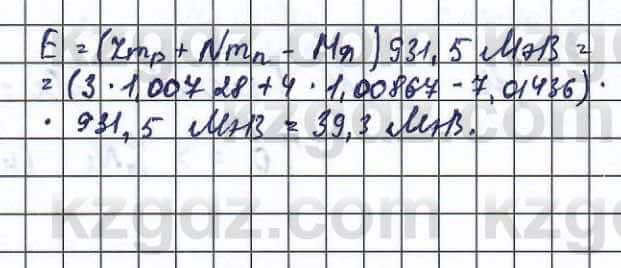 E = (Zmp + Nmn - Mя) 931,5 МэВ =
= (3 · 1,00728 + 4 · 1,00867 - 7,01436) ·
· 931,5 МэВ = 39,3 МэВ.
kzgdz.com
kzgdz.com